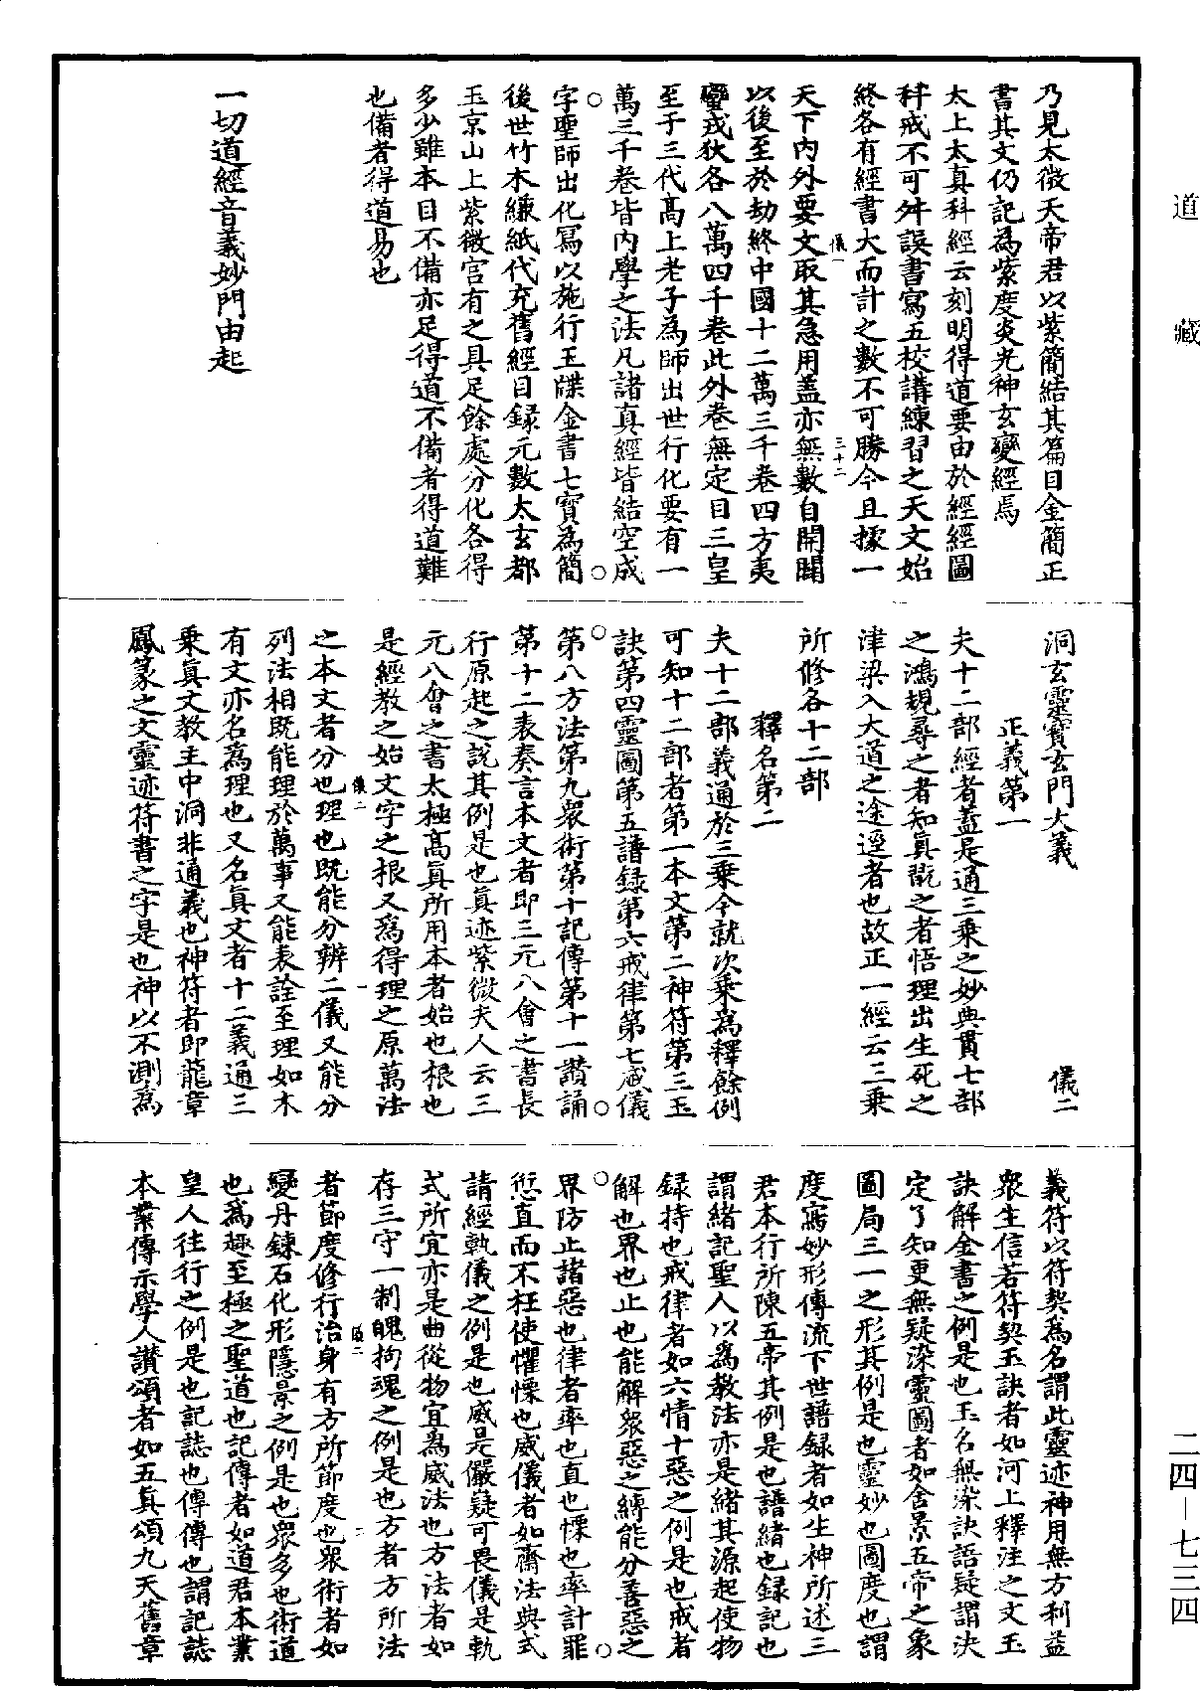 道藏
乃見太微天帝君以紫簡結其篇目金簡正
書其文仍記為紫度炎光神玄變經焉
太上太真科經云刻明得道要由於經經圖
科戒不可舛誤書寫五校講練習之天文始
終各有經書大而計之數不可勝今且據一
儀一
三十二
天下內外要文取其急用蓋亦無數自開闢
以後至於劫終中國十二萬三千卷四方夷
蠻戎狄各八萬四千卷此外卷無定目三皇
至于三代高上老子為師出世行化要有一
萬三千卷皆內學之法凡諸真經皆結空成
字聖師出化寫以施行玉牒金書七寶為簡
後世竹木縑紙代充舊經目録元數太玄都
玉京山上紫微宮有之具足餘處分化各得
多少雖本目不備亦足得道不備者得道難
也備者得道易也
一切道經音義妙門由起
洞玄靈寶玄門大義
儀二
正義第一
夫十二部經者蓋是通三乘之妙典貫七部
之鴻規尋之者知真翫之者悟理出生死之
津梁入大道之途逕者也故正一經云三乘
所修各十二部
釋名第二
夫十二部義通於三乘今就次乘為釋餘例
可知十二部者第一本文第二神符第三玉
訣第四靈圖第五譜録第六戒律第七威儀
第八方法第九衆術第十記傳第十一讃誦
第十二表奏言本文者即三元八會之書長
行原起之說其例是也真迹紫微夫人云三
元八會之書太極高真所用本者始也根也
是經教之始文字之根又為得理之原萬法
儀二
一
之本文者分也理也既能分辨二儀又能分
列法相既能理於萬事又能表詮至理如木
有文亦名為理也又名真文者十二義通三
乘真文教主中洞非通義也神符者即龍章
鳳篆之文靈迹符書之字是也神以不測為
義符以符契為名謂此靈迹神用無方利益
衆生信若符契玉訣者如河上釋注之文玉
訣解金書之例是也玉名無染訣語疑謂決
定了知更無疑染靈圖者如含景五帝之象
圖局三一之形其例是也靈妙也圖度也謂
度寫妙形傳流下世譜録者如生神所述三
君本行所陳五帝其例是也譜緒也録記也
謂緒記聖人以為教法亦是緒其源起使物
録持也戒律者如六情十惡之例是也戒者
解也界也止也能解衆惡之縛能分善惡之
界防止諸惡也律者率也直也慄也率計罪
愆直而不枉使懼慄也威儀者如齋法典式
請經軌儀之例是也威是儼嶷可畏儀是軌
式所宜亦是曲從物宜為威法也方法者如
存三守一制魄拘魂之例是也方者方所法
二
者節度修行治身有方所節度也衆術者如
變丹鍊石化形隱景之例是也衆多也術道
也為趣至極之聖道也記傳者如道君本業
皇人往行之例是也記誌也傳傳也謂記誌
本業傳示學人讃頌者如五真頌九天舊章
二四—七三四